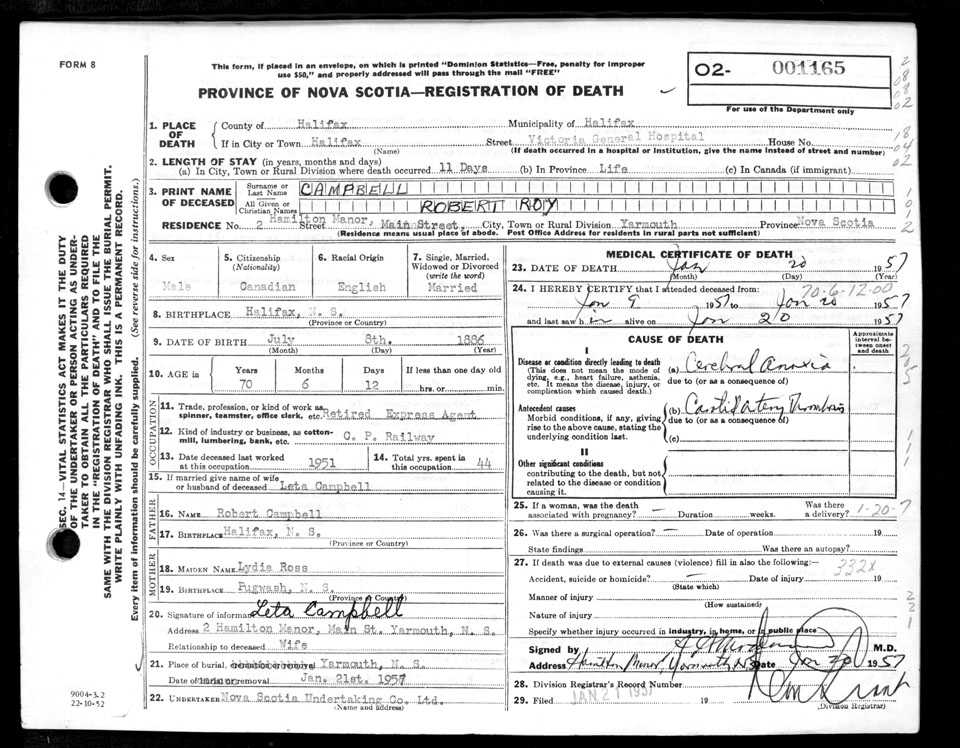 FORM 8
This form, if placed in an envelope, on which is printed "Dominion Statistics—Free, penalty for improper
use $50," and properly addressed will pass through the mail "FREE"
PROVINCE OF NOVA SCOTIA—REGISTRATION OF DEATH
02- 001165
For use of the Department only
1. PLACE OF DEATH County of Halifax Municipality of Halifax
If in City or Town Halifax Street Victoria General Hospital House No.
(Name) (If death occurred in a hospital or institution, give the name instead of street and number)
2. LENGTH OF STAY (in years, months and days)
(a) In City, Town or Rural Division where death occurred 11 Days (b) In Province Life (c) In Canada (if immigrant)
3. PRINT NAME OF DECEASED Surname or Last Name CAMPBELL
All Given or Christian Names ROBERT ROY
RESIDENCE No. 2 Hamilton Manor, Street Main Street, City, Town or Rural Division Yarmouth Province Nova Scotia
(Residence means usual place of abode. Post Office Address for residents in rural parts not sufficient)
4. Sex 5. Citizenship (Nationality) 6. Racial Origin 7. Single, Married, Widowed or Divorced (write the word)
Male Canadian English Married
8. BIRTHPLACE Halifax, N. S.
(Province or Country)
9. DATE OF BIRTH July 8th. 1886
(Month) (Day) (Year)
10. AGE in Years Months Days If less than one day old
70 6 12 hrs. or min.
OCCUPATION
11. Trade, profession, or kind of work as spinner, teamster, office clerk, etc. Retired Express Agent
12. Kind of industry or business, as cotton-mill, lumbering, bank, etc. C. P. Railway
13. Date deceased last worked at this occupation 1951 14. Total yrs. spent in this occupation 44
15. If married give name of wife or husband of deceased Leta Campbell
FATHER
16. NAME Robert Campbell
17. BIRTHPLACE Halifax, N. S.
(Province or Country)
MOTHER
18. MAIDEN NAME Lydia Ross
19. BIRTHPLACE Pugwash, N. S.
(Province or Country)
20. Signature of informant Leta Campbell
Address 2 Hamilton Manor, Main St. Yarmouth, N. S.
Relationship to deceased Wife
21. Place of burial, Yarmouth, N. S.
Date or removal Jan. 21st. 1957
22. UNDERTAKER Nova Scotia Undertaking Co. Ltd.
(Name and address)
MEDICAL CERTIFICATE OF DEATH
23. DATE OF DEATH Jan 20 1957
(Month) (Day) (Year)
24. I HEREBY CERTIFY that I attended deceased from:
70-6-12-00
Jan 9 1957 to Jan 20 1957
and last saw him alive on Jan 20 1957
CAUSE OF DEATH
Approximate interval between onset and death
I
Disease or condition directly leading to death
(This does not mean the mode of dying, e.g., heart failure, asthenia, etc. It means the disease, injury, or complication which caused death.)
(a) Cerebral Anoxia
due to (or as a consequence of)
Antecedent causes
Morbid conditions, if any, giving rise to the above cause, stating the underlying condition last.
(b) Carotid Artery Thrombosis
due to (or as a consequence of)
(c)
II
Other significant conditions
contributing to the death, but not related to the disease or condition causing it.
25. If a woman, was the death associated with pregnancy? — Duration weeks. Was there a delivery?
1-20-7
26. Was there a surgical operation? — Date of operation 19
State findings Was there an autopsy?
27. If death was due to external causes (violence) fill in also the following:—
332x
Accident, suicide or homicide? — Date of injury 19
(State which)
Manner of injury
(How sustained)
Nature of injury
Specify whether injury occurred in industry, in home, or in public place
Signed by M.D.
Address Hamilton Manor, Yarmouth NS Date Jan 20 1957
28. Division Registrar's Record Number
29. Filed JAN 21 1957 19
(Division Registrar)
SEC. 14—VITAL STATISTICS ACT MAKES IT THE DUTY
OF THE UNDERTAKER OR PERSON ACTING AS UNDER-
TAKER TO OBTAIN ALL THE PARTICULARS REQUIRED
IN THE "REGISTRATION OF DEATH" AND TO FILE THE
SAME WITH THE DIVISION REGISTRAR WHO SHALL ISSUE THE BURIAL PERMIT.
WRITE PLAINLY WITH UNFADING INK. THIS IS A PERMANENT RECORD.
Every item of information should be carefully supplied. (See reverse side for instructions.)
9004-3.2
22-10-52